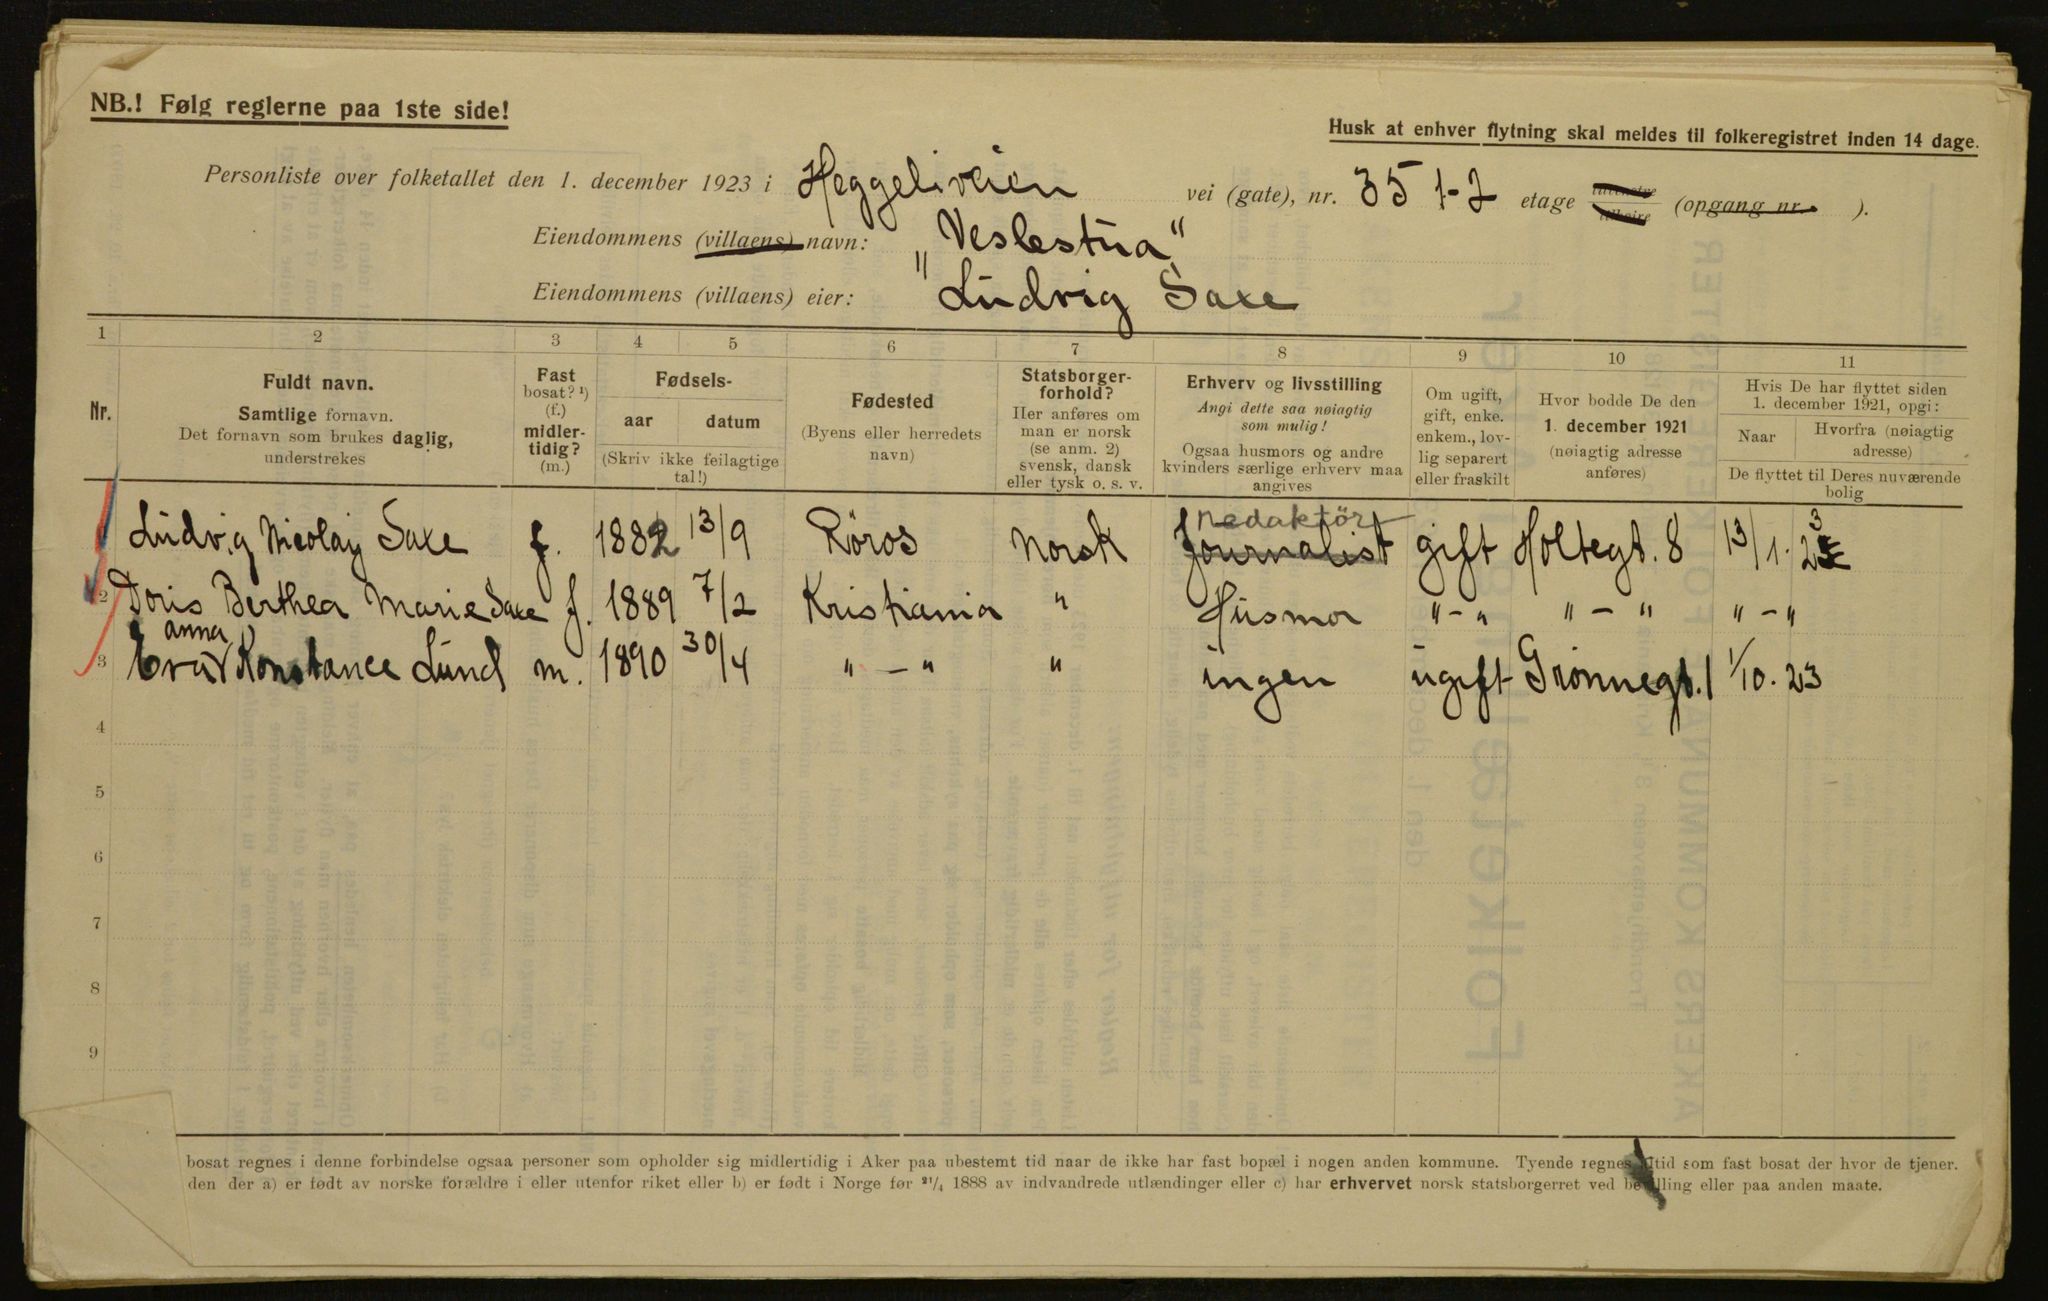 NB.! Følg reglerne paa 1ste side!
Husk at enhver flytning skal meldes til folkeregistret inden 14 dage.
Personliste over folketallet den 1. december 1923 i Heggeliveien vei (gate), nr. 35 1-2 etage tilvenstre tilhøire (opgang nr. ).
Eiendommens (villaens) navn: "Veslestua"
Eiendommens (villaens) eier: Ludvig Saxe
1 2 3 4 5 6 7 8 9 10 11
Nr.
Fuldt navn.
Samtlige fornavn.
Det fornavn som brukes daglig,
understrekes
Fast
bosat? ¹)
(f.)
midler-
tidig?
(m.)
Fødsels-
aar datum
(Skriv ikke feilagtige
tal!)
Fødested
(Byens eller herredets
navn)
Statsborger-
forhold?
Her anføres om
man er norsk
(se anm. 2)
svensk, dansk
eller tysk o. s. v.
Erhverv og livsstilling
Angi dette saa nøiagtig
som mulig!
Ogsaa husmors og andre
kvinders særlige erhverv maa
angives
Om ugift,
gift, enke.
enkem., lov-
lig separert
eller fraskilt
Hvor bodde De den
1. december 1921
(nøiagtig adresse
anføres)
Hvis De har flyttet siden
1. december 1921, opgi:
Naar
Hvorfra (nøiagtig
adresse)
De flyttet til Deres nuværende
bolig
Redaktör
Ludvig Nicolay Saxe f. 1882 13/9 Röros Norsk Journalist gift Holtegt. 8 13/1. 23
2 Doris Berthea Marie Saxe f. 1889 7/2 Kristiania " Husmor "-" "-" "-"
anna
3 Eva Konstance Lund m. 1890 30/4 "-" " ingen ugift Grönnegt. 1 1/10. 23
4
5
6
7
8
9
bosat regnes i denne forbindelse ogsaa personer som opholder sig midlertidig i Aker paa ubestemt tid naar de ikke har fast bopæl i nogen anden kommune. Tyende regnes altid som fast bosat der hvor de tjener.
den der a) er født av norske forældre i eller utenfor riket eller b) er født i Norge før 21/4 1888 av indvandrede utlændinger eller c) har erhvervet norsk statsborgerret ved bevilling eller paa anden maate.